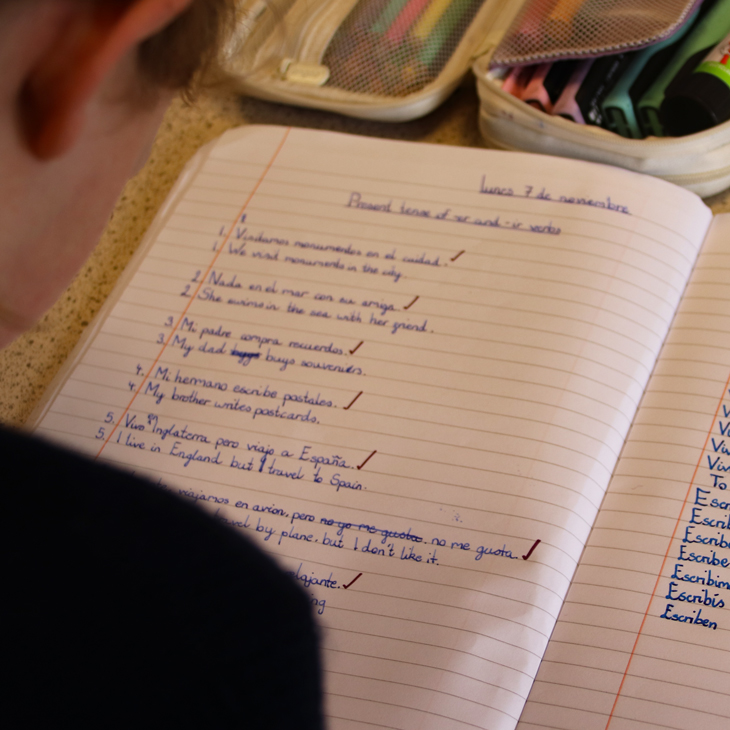 lunes 7 de noviembre
Present tense of -er and -ir verbs
1. Visitamos monumentos en el cuidad.
1. We visit monuments in the city.
2. Nada en el mar con su amiga.
2. She swims in the sea with her friend.
3. Mi padre compra recuerdos.
3. My dad buys souvenirs.
4. Mi hermano escribe postales.
4. My brother writes postcards.
5. Vivo en Inglaterra pero viajo a España.
5. I live in England but I travel to Spain.
viajamos en avion, pero no go me gusta no me gusta.
travel by plane, but I don't like it.
lajante.
ng
To
Escri
Escrib
Escribe
Escribe
Escribim
Escribís
Escriben